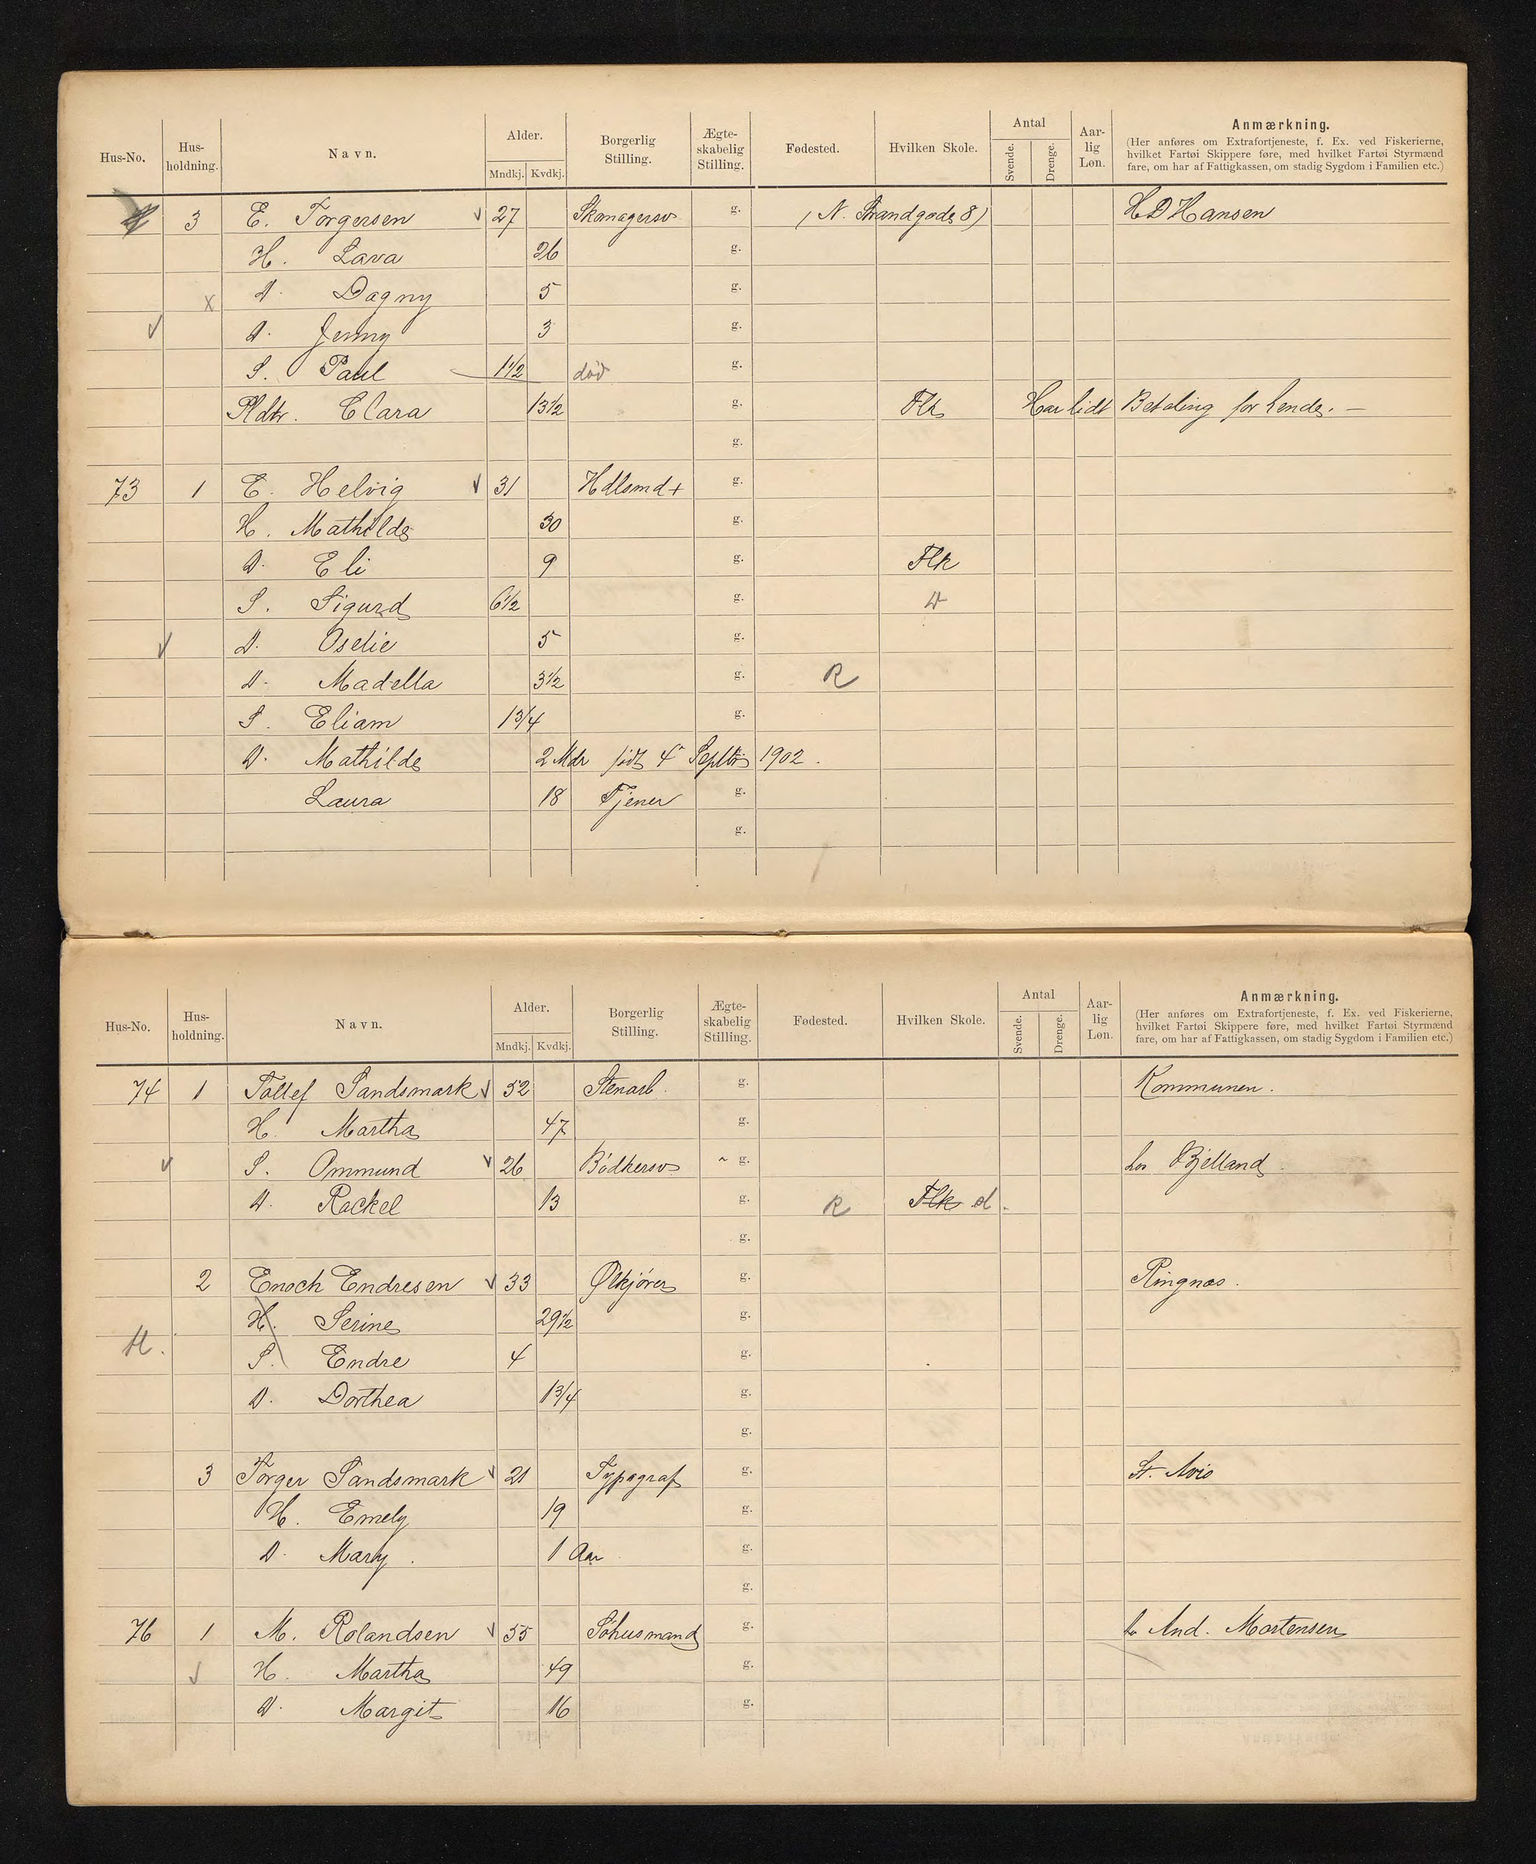 Hus-No. Hus-holdning. Navn. Alder. Mndkj. Kvdkj. Borgerlig Stilling. Ægte-skabelig Stilling. Fødested. Hvilken Skole. Antal Svende. Drenge. Aar-lig Løn. Anmærkning.
(Her anføres om Extrafortjeneste, f. Ex. ved Fiskerierne, hvilket Fartøi Skippere føre, med hvilket Fartøi Styrmænd fare, om har af Fattigkassen, om stadig Sygdom i Familien etc.)
3 E. Torgersen √ 27 Skomagersv g. (N. Strandgade 8) H D Hansen
H. Lava 26 g.
x D. Dagny 5 g.
√ D. Jenny 3 g.
S. Paul 1 1/2 død g.
Pldtr. Clara 13 1/2 g. Flk Har lidt Betaling for hende. —
g.
73 1 E. Helvig √ 31 Hdlsmd + g.
H. Mathilde 30 g.
D. Eli 9 g. Flk
S. Sigurd 6 1/2 g.
√ D. Oselie 5 g.
D. Madella 3 1/2 g. R
S. Eliam 1 3/4 g.
D. Mathilde 2 Mdr født 4 Septbr 1902.
Laura 18 Tjener g.
g.
Hus-No. Hus-holdning. Navn. Alder. Mndkj. Kvdkj. Borgerlig Stilling. Ægte-skabelig Stilling. Fødested. Hvilken Skole. Antal Svende. Drenge. Aar-lig Løn. Anmærkning.
(Her anføres om Extrafortjeneste, f. Ex. ved Fiskerierne, hvilket Fartøi Skippere føre, med hvilket Fartøi Styrmænd fare, om har af Fattigkassen, om stadig Sygdom i Familien etc.)
74 1 Tollef Sandsmark √ 52 Stenarb. g. Kommunen.
H. Martha 47 g.
√ S. Ommund √ 26 Bødkersv g. hos Bjelland.
D. Rackel 13 g. R Flk d.
g.
2 Enoch Endresen √ 33 Ølkjører g. Ringnæs.
H. Serine 29 1/2 g.
M. S. Endre 4 g.
D. Dorthea 1 3/4 g.
g.
3 Torger Sandsmark √ 21 Typograf g. St. Avis
H. Emely 19 g.
D. Mary. 1 Aar g.
g.
76 1 M. Rolandsen √ 55 Søhusmand g. And. Mortensen
√ H. Martha 49 g.
D. Margit 16 g.